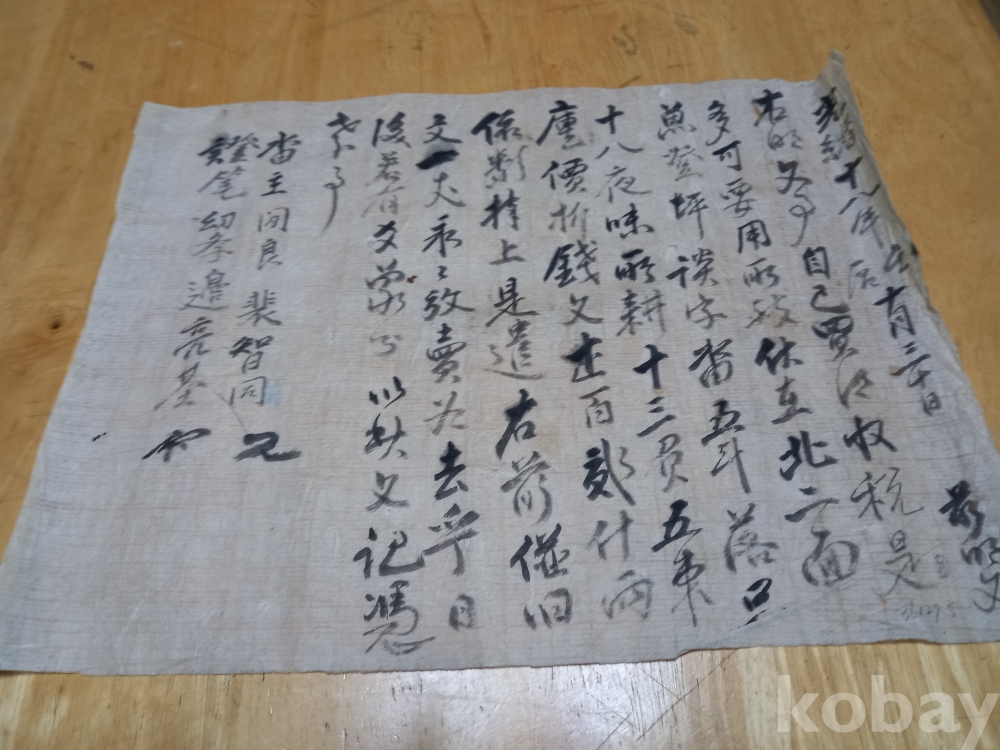 十八年 十月二十日 前明文
右明文事自己買得收稅是
多可要用所致伏在北二面
萬登坪談字畓五斗落只
十八夜味所耕十三負五束
廛價折錢文 百 什兩
依數捧上是遣右前 旧
文一丈永永放賣爲去乎日
後若有 以此文記憑
考事
畓主閑良裴智同
證筆幼學邊亮基
kobay